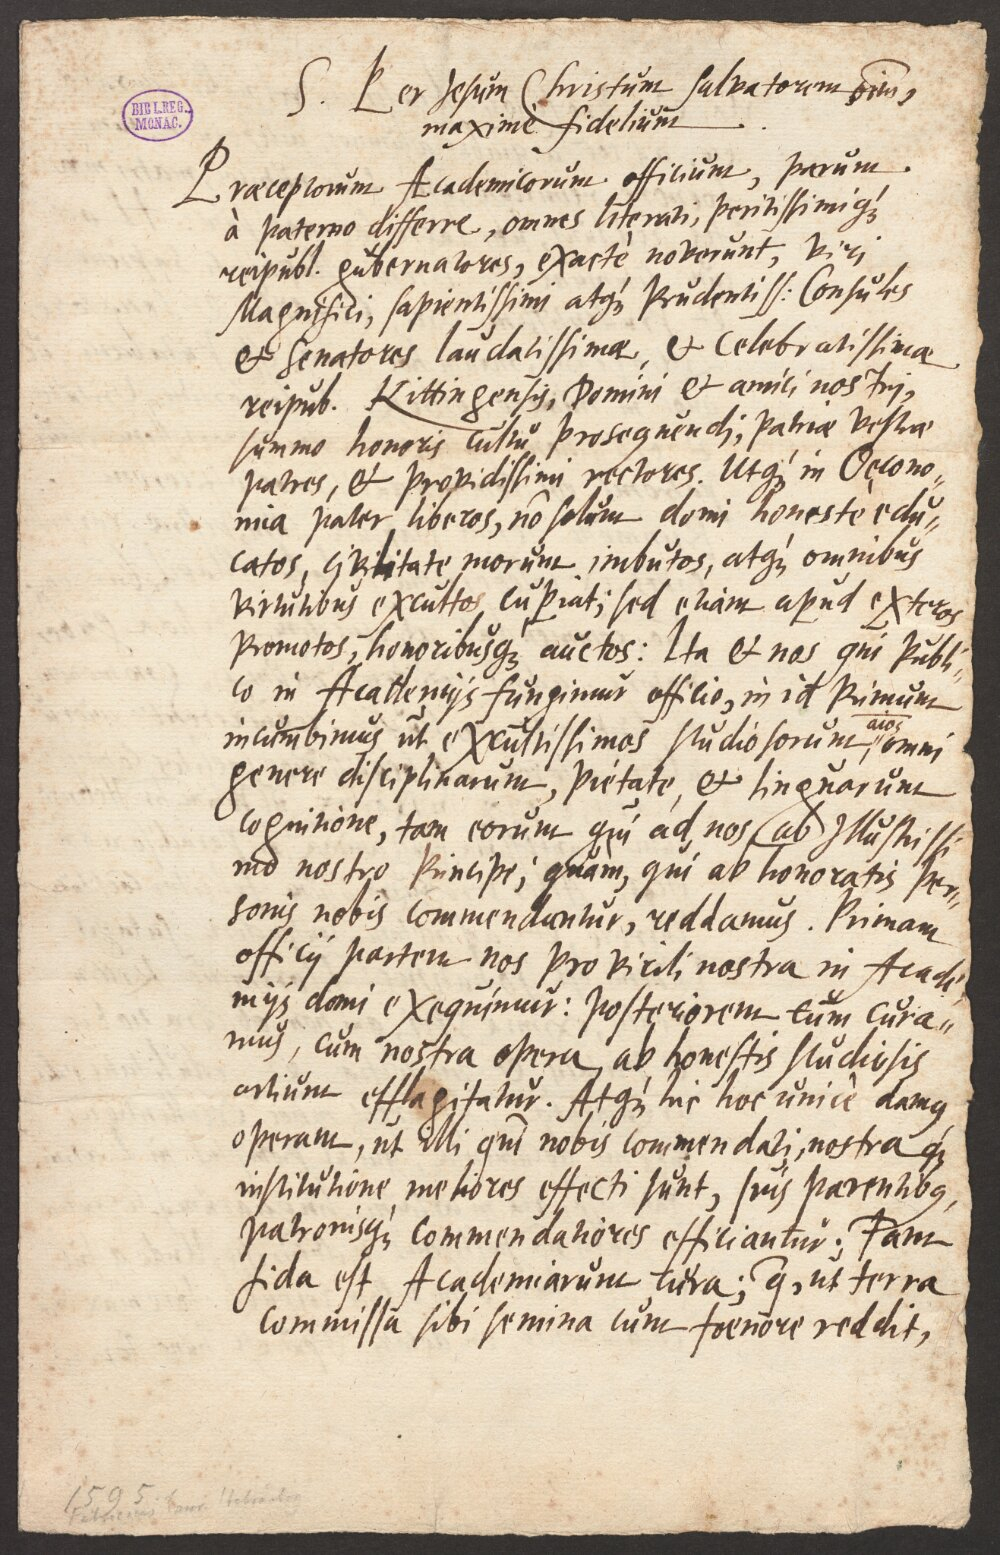 BIBL.REG.
MONAC.
S. Per Jesum Christum salvatorem oīm,
maximè fidelium
Præceptorum Academicorum officium, parum
à paterno differre, omnes literati, peritissimiqꝫ
reipubl. gubernatores, exactè noverunt, Viri
Magnifici, sapientissimi atqꝫ Prudentiss: Consules
& Senatores laudatissimæ, & Celebratissimæ
reipub. Kittingensis, Domini & amici nostri,
summo honoris cultu prosequendi, patriæ vestræ
patres, & providissimi rectores. Utqꝫ in Oecono„
mia pater liberos, nō solum domi honestè edu„
catos, civilitate morum imbutos, atqꝫ omnibus
virtutibus excultos cupiat; sed etiam apud exteros
promotos, honoribusqꝫ auctos: Ita & nos qui publi„
co in Academijs fungimur officio, in id primum
incumbimus ut excultissimos studiosorum aīos omni
genere disciplinarum, pietate, & linguarum
cognitione, tam eorum qui ad nos ab Illustrissi„
mo nostro Principe; quam, qui ab honoratis per„
sonis nobis commendantur, reddamus. Primam
officij partem nos pro virili nostra in Acade„
mijs domi exequimur: posteriorem tum cura„
mus, cum nostra opera ab honestis studiosis
artium efflagitatur. Atqꝫ hic hoc unicè damus
operam, ut illi qui nobis commendati, nostra qꝫ
institutione meliores effecti sunt, suis parentibꝫ,
patronisqꝫ commendatiores efficiantur; Tam
fida est Academiarum cura; q̄, ut terra
commissa sibi semina cum foenore reddit,
1595
Fabricius